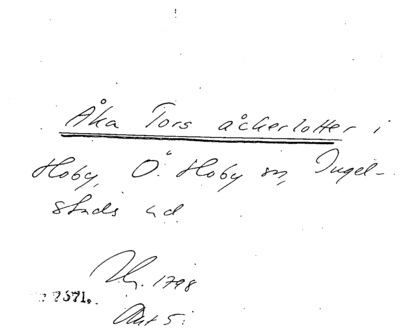 Åka Tors åckerlotter i
Hoby, Ö. Hoby sn, Ingel-
stads hd
1798
7571.